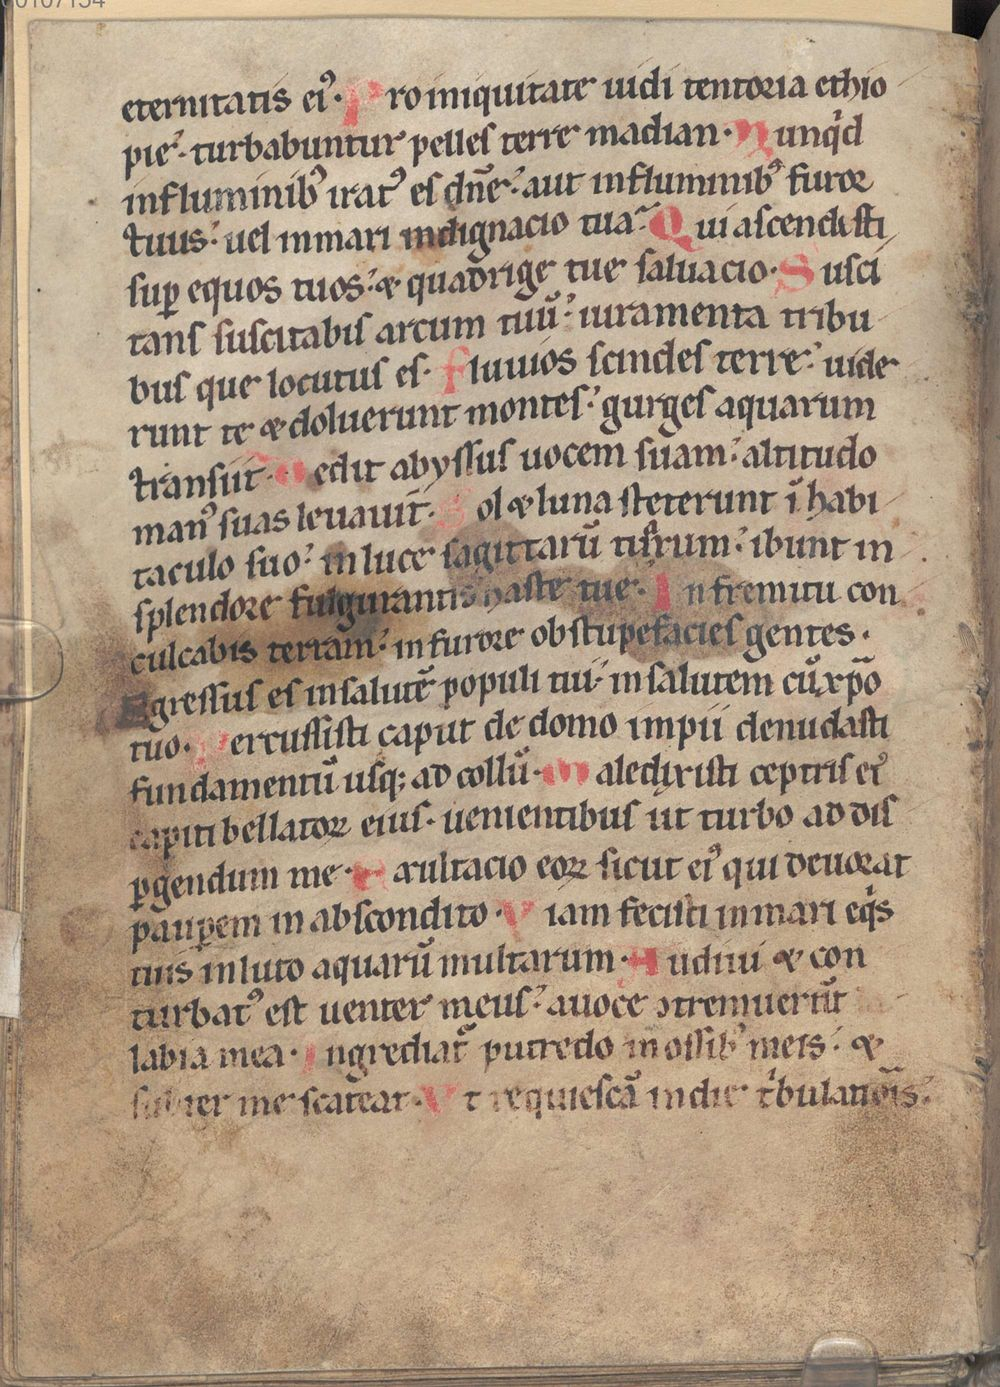 00107154
eternitatis eiꝰ· Pro iniquitate uidi tentoria ethio
pie᷑· turbabuntur pelles terre madian· Nunqͥd
influminibꝰ iratꝰ es dn̄e᷑· aut influminibꝰ furor
tuus᷑· uel inmari indignacio tua᷑· Qui ascendisti
suꝑ equos tuos᷑· ⁊ quadrige tue saluacio· Susci
tans suscitabis arcum tuū᷑· iuramenta tribu
bus que locutus es· Fluuios scindes terre᷑· uide
runt te ⁊ doluerunt montes᷑· gurges aquarum
transiit· Dedit abyssus uocem suam᷑· altitudo
manꝰ suas leuauit̄· Sol ⁊ luna steterunt ī habi
taculo suo᷑· inluce sagittarū tuarum᷑· ibunt in
splendore fulgurantis haste tue· In fremitu con
culcabis terram᷑· infurore obstupefacies gentes·
Egressus es insalutē populi tui᷑· insalutem cū xp̄o
tuo· Percussisti caput de domo impii denudasti
fundamentū usqꝫ ad collū· Maledixisti ceptris eiꝰ
capiti bellatoꝝ eius· uenientibus ut turbo ad dis
ꝑgendum me· Exultacio eoꝝ sicut eiꝰ qui deuorat
pauꝑem in abscondito· Viam fecisti inmari eqͥs
tuis inluto aquarū multarum· Audiui ⁊ con
turbatꝰ est uenter meus᷑· auoce ↄtremuerūt
labia mea· Ingrediat᷑ putredo inossibꝰ meis᷑· ⁊
subter me scateat· Vt requiescā indie tͥbulationīs᷑·